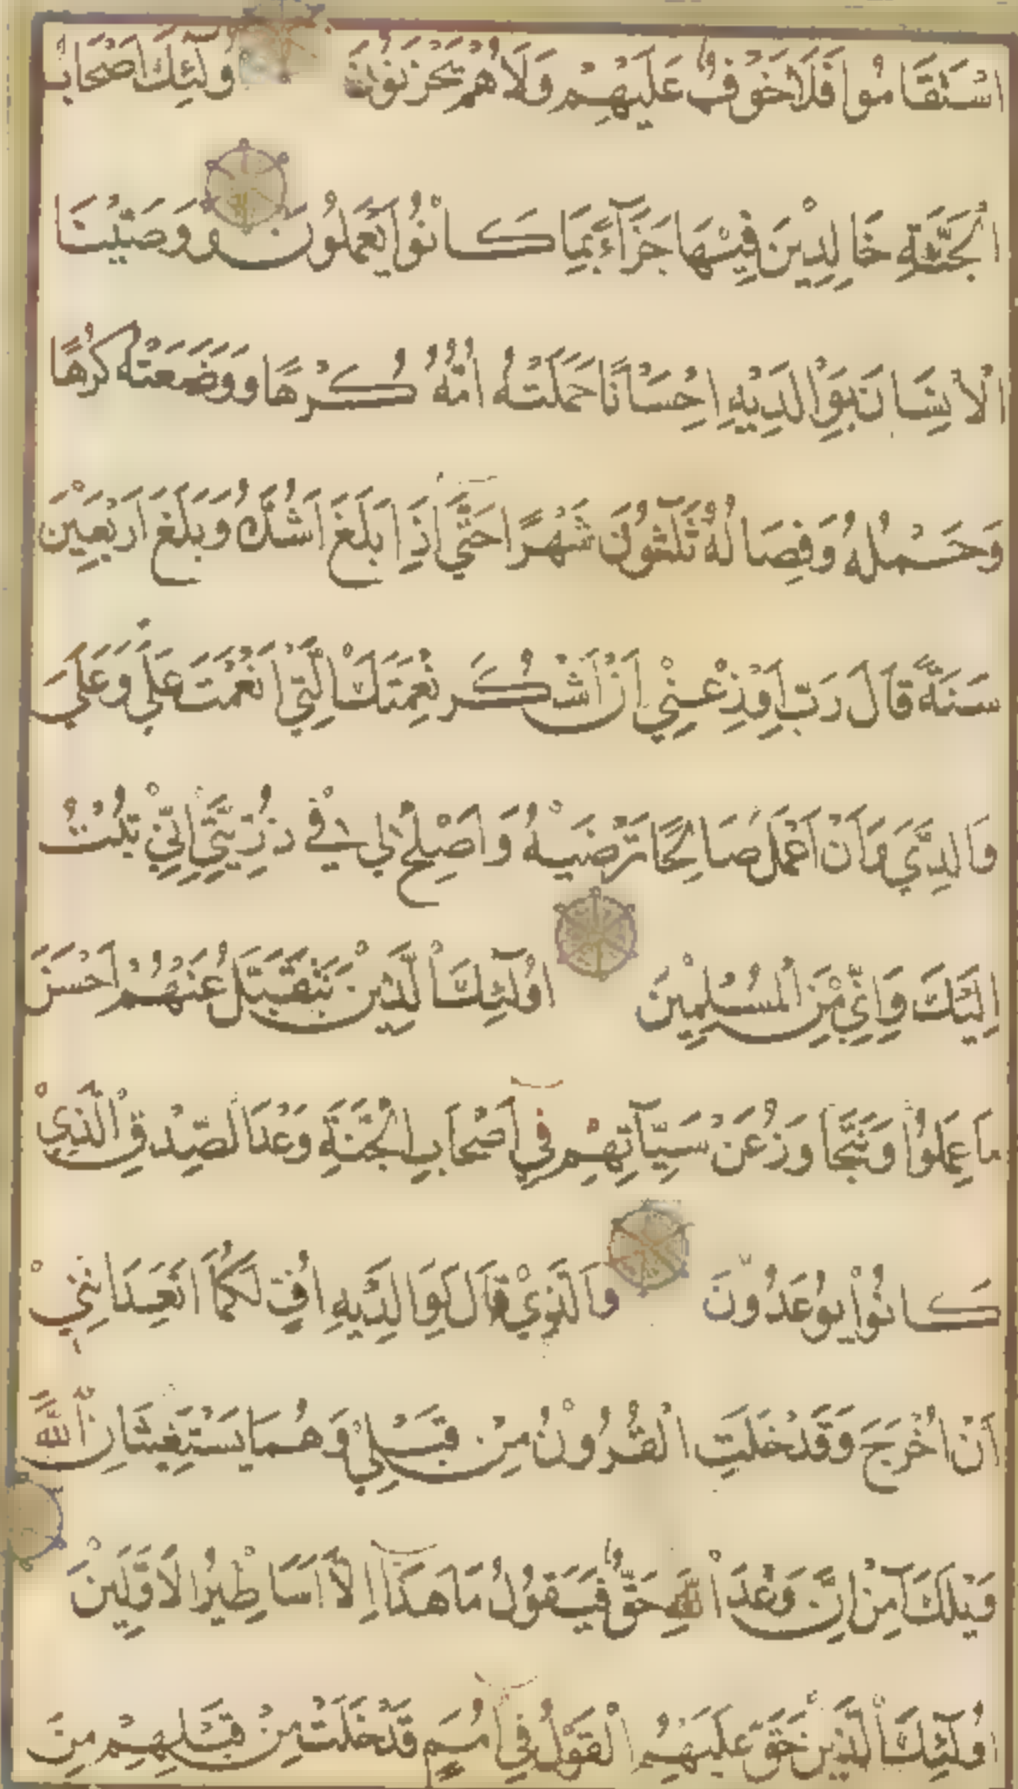 اسْتَقَامُوا فَلَا خَوْفٌ عَلَيْهِمْ وَلَا هُمْ يَحْزَنُونَ اُولَٓئِكَ اَصْحَابُ
الْجَنَّةِ خَالِدِيْنَ فِيْهَا جَزَآءً بِمَا كَانُوا يَعْمَلُونَ وَوَصَّيْنَا
الْاِنْسَانَ بِوَالِدَيْهِ اِحْسَانًا حَمَلَتْهُ اُمُّهُ كُرْهًا وَوَضَعَتْهُ كُرْهًا
وَحَمْلُهُ وَفِصَالُهُ ثَلٰثُونَ شَهْرًا حَتَّٓى اِذَا بَلَغَ اَشُدَّهُ وَبَلَغَ اَرْبَعِيْنَ
سَنَةً قَالَ رَبِّ اَوْزِعْنِيْ اَنْ اَشْكُرَ نِعْمَتَكَ الَّتِيْ اَنْعَمْتَ عَلَيَّ وَعَلٰى
وَالِدَيَّ وَاَنْ اَعْمَلَ صَالِحًا تَرْضٰيهُ وَاَصْلِحْ لِيْ فِيْ ذُرِّيَّتِيْ اِنِّيْ تُبْتُ
اِلَيْكَ وَاِنِّيْ مِنَ الْمُسْلِمِيْنَ اُولَٓئِكَ الَّذِيْنَ نَتَقَبَّلُ عَنْهُمْ اَحْسَنَ
مَا عَمِلُوْا وَنَتَجَاوَزُ عَنْ سَيِّاٰتِهِمْ فِيْٓ اَصْحَابِ الْجَنَّةِ وَعْدَ الصِّدْقِ الَّذِيْ
كَانُوْا يُوعَدُونَ وَالَّذِيْ قَالَ لِوَالِدَيْهِ اُفٍّ لَكُمَا اَتَعِدَانِنِيْ
اَنْ اُخْرَجَ وَقَدْ خَلَتِ الْقُرُوْنُ مِنْ قَبْلِيْ وَهُمَا يَسْتَغِيْثَانِ اللّٰهَ
وَيْلَكَ اٰمِنْ اِنَّ وَعْدَ اللّٰهِ حَقٌّ فَيَقُوْلُ مَا هَذَٓا اِلَّا اَسَاطِيْرُ الْاَوَّلِيْنَ
اُولَٓئِكَ الَّذِيْنَ حَقَّ عَلَيْهِمُ الْقَوْلُ فِيْٓ اُمَمٍ قَدْ خَلَتْ مِنْ قَبْلِهِمْ مِنَ